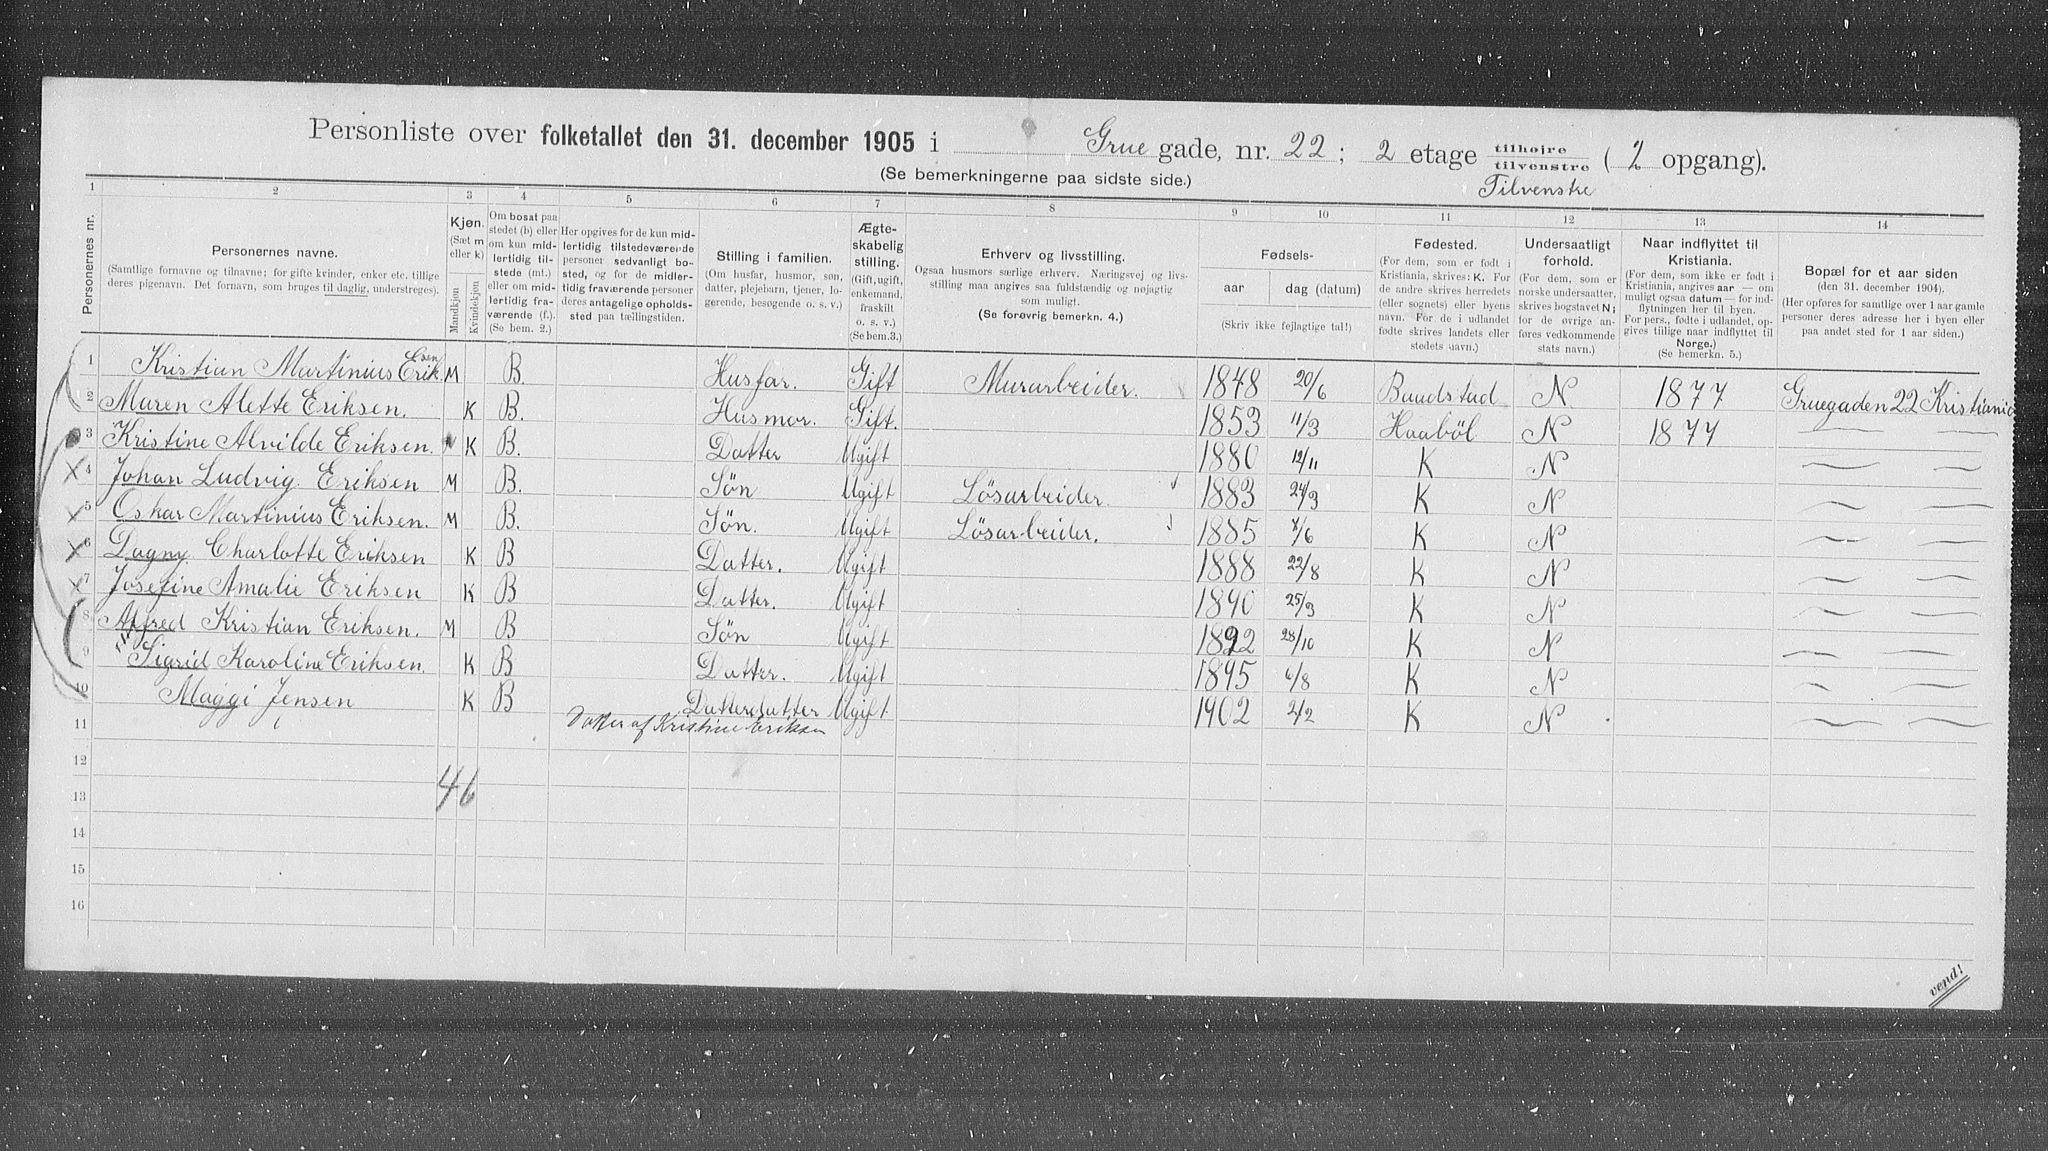 Personliste over folketallet den 31. december 1905 i Grue gade, nr. 22; 2 etage tilhøjre tilvenstre ( 2 opgang).
(Se bemerkningerne paa sidste side.) Tilvenstre
1 2 3 4 5 6 7 8 9 10 11 12 13 14
Personernes nr.
Personernes navne.
(Samtlige fornavne og tilnavne; for gifte kvinder, enker etc. tillige
deres pigenavn. Det fornavn, som bruges til daglig, understreges).
Kjøn.
(Sæt m
eller k)
Mandkjøn
Kvindekjøn
Om bosat paa
stedet (b) eller
om kun mid-
lertidig til-
stede (mt.)
eller om mid-
lertidig fra-
værende (f.).
(Se bem. 2.)
Her opgives for de kun mid-
lertidig tilstedeværende
personer sedvanligt bo-
sted, og for de midler-
tidig fraværende personer
deres antagelige opholds-
sted paa tællingstiden.
Stilling i familien.
(Om husfar, husmor, søn,
datter, plejebarn, tjener, lo-
gerende, besøgende o. s. v.)
Ægte-
skabelig
stilling.
(Gift, ugift,
enkemand,
fraskilt
o. s. v.)
(Se bem.3.)
Erhverv og livsstilling.
Ogsaa husmors særlige erhverv. Næringsvej og livs-
stilling maa angives saa fuldstændig og nøjagtig
som muligt.
(Se forøvrig bemerkn. 4.)
Fødsels-
aar dag (datum)
(Skriv ikke fejlagtige tal!)
Fødested.
(For dem, som er født i
Kristiania, skrives: K. For
de andre skrives herredets
(eller sognets) eller byens
navn. For de i udlandet
fødte skrives landets eller
stedets navn.)
Undersaatligt
forhold.
(For dem, som er
norske undersaatter,
skrives bogstavet N;
for de øvrige an-
føres vedkommende
stats navn.)
Naar indflyttet til
Kristiania.
(For dem, som ikke er født i
Kristiania, angives aar — om
muligt ogsaa datum — for ind-
flytningen her til byen.
For pers., fødte i udlandet, op-
gives tillige naar indflyttet til
Norge.)
(Se bemerkn. 5.)
Bopæl for et aar siden
(den 31. december 1904).
(Her opføres for samtlige over 1 aar gamle
personer deres adresse her i byen eller
paa andet sted for 1 aar siden.)
1 Kristian Martinius Eriksen M B. Husfar. Gift Murarbeider. 1848 20/6 Baadstad N 1877 Gruegaden 22 Kristiania
2 Maren Alette Eriksen. K B. Husmor. Gift. 1853 11/3 Haaböl N 1877
3 Kristine Alvilde Eriksen. K B. Datter Ugift 1880 12/11 K N
4 Johan Ludvig Eriksen M B. Søn Ugift Lösarbeider. 1883 24/3 K N
5 Oskar Martinius Eriksen. M B. Søn. Ugift Lösarbeider. 1885 7/6 K N
6 Dagny Charlotte Eriksen K B Datter. Ugift 1888 22/8 K N
7 Josefine Amalie Eriksen K B Datter. Ugift 1890 25/3 K N
8 Alfred Kristian Eriksen. M B Søn Ugift 1892 28/10 K N
9 Sigrid Karoline Eriksen. K B Datter. Ugift 1895 6/8 K N
10 Maggi Jensen K B Datterdatter Ugift 1902 2/2 K N
11 Datter af Kristine Eriksen
12
13 46
14
15
16
vend!